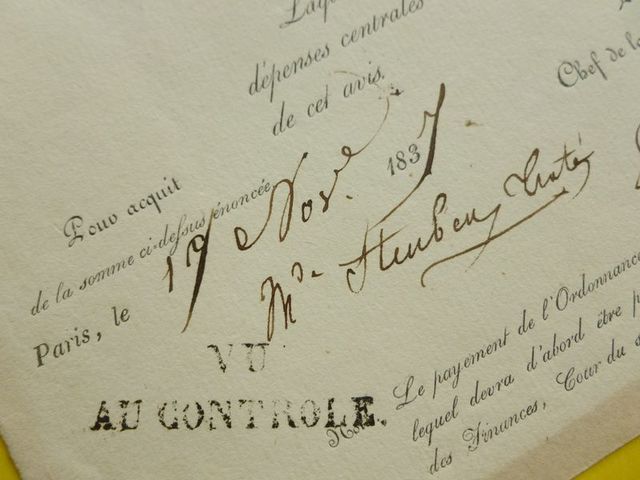 dépenses centrales
de cet avis.
Chef de la
Pour acquit
de la somme ci-dessus énoncée
Paris, le 17 Nov.re 1837
M.de Steuben
VU
AU CONTROLE.
Le payement de l'Ordonnance
lequel devra d'abord être p
des Finances, Cour du